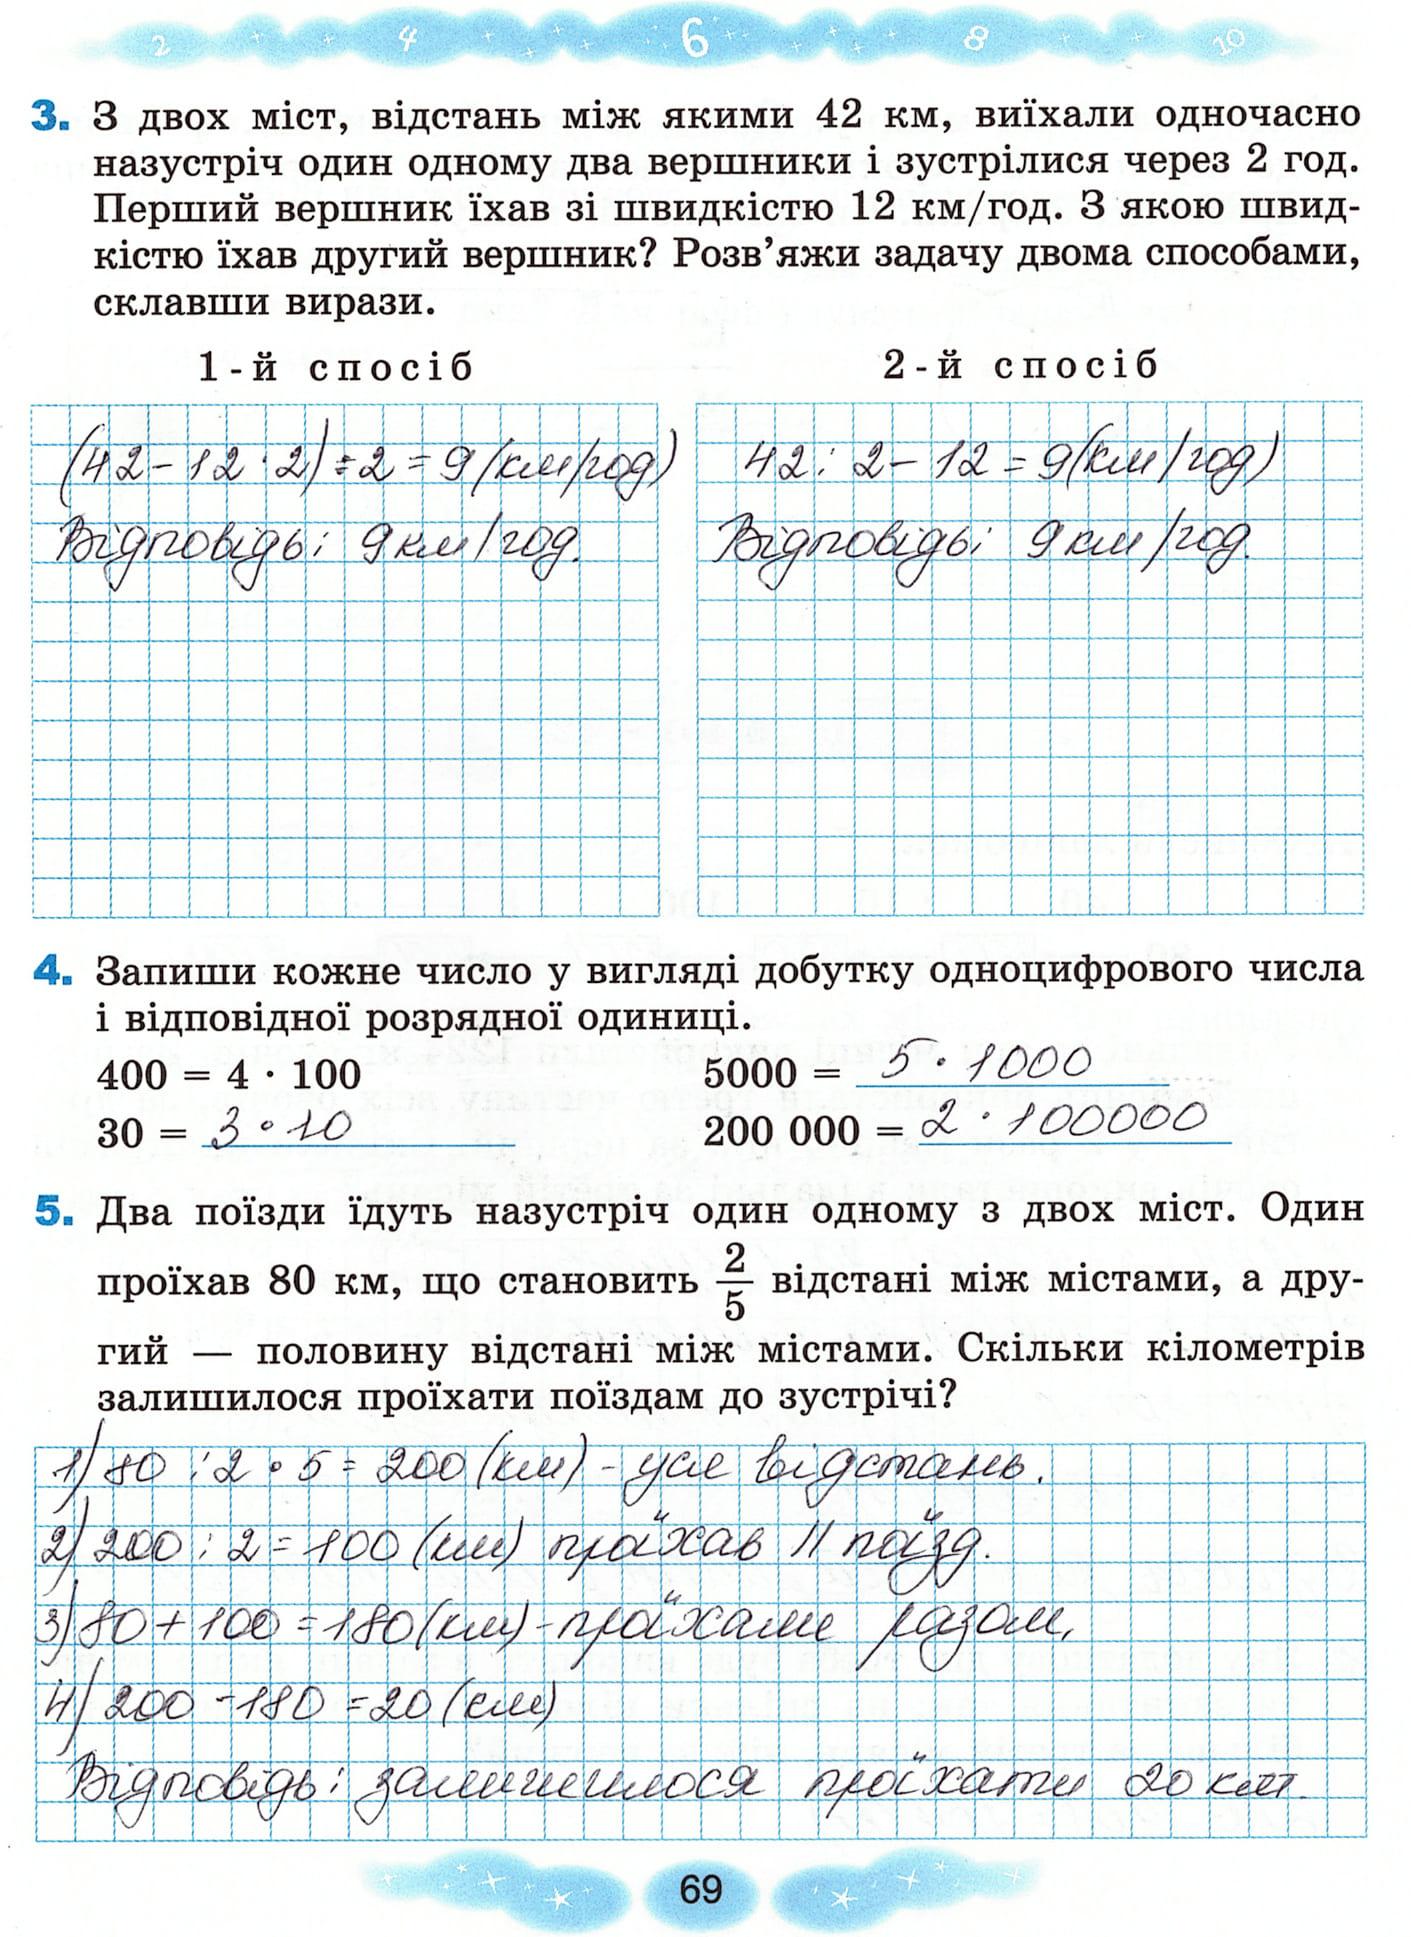 2 4 6 8 10
3. З двох міст, відстань між якими 42 км, виїхали одночасно
назустріч один одному два вершники і зустрілися через 2 год.
Перший вершник їхав зі швидкістю 12 км/год. З якою швид-
кістю їхав другий вершник? Розв’яжи задачу двома способами,
склавши вирази.
1-й спосіб
(42 - 12 · 2) : 2 = 9 (км/год)
Відповідь: 9 км/год.
2-й спосіб
42 : 2 - 12 = 9 (км/год)
Відповідь: 9 км/год.
4. Запиши кожне число у вигляді добутку одноцифрового числа
і відповідної розрядної одиниці.
400 = 4 · 100 5000 = 5 · 1000
30 = 3 · 10 200 000 = 2 · 100000
5. Два поїзди їдуть назустріч один одному з двох міст. Один
проїхав 80 км, що становить 2/5 відстані між містами, а дру-
гий — половину відстані між містами. Скільки кілометрів
залишилося проїхати поїздам до зустрічі?
1) 80 : 2 · 5 = 200 (км) - уся відстань.
2) 200 : 2 = 100 (км) проїхав II поїзд.
3) 80 + 100 = 180 (км) - проїхали разом.
4) 200 - 180 = 20 (км)
Відповідь: залишилося проїхати 20 км.
69